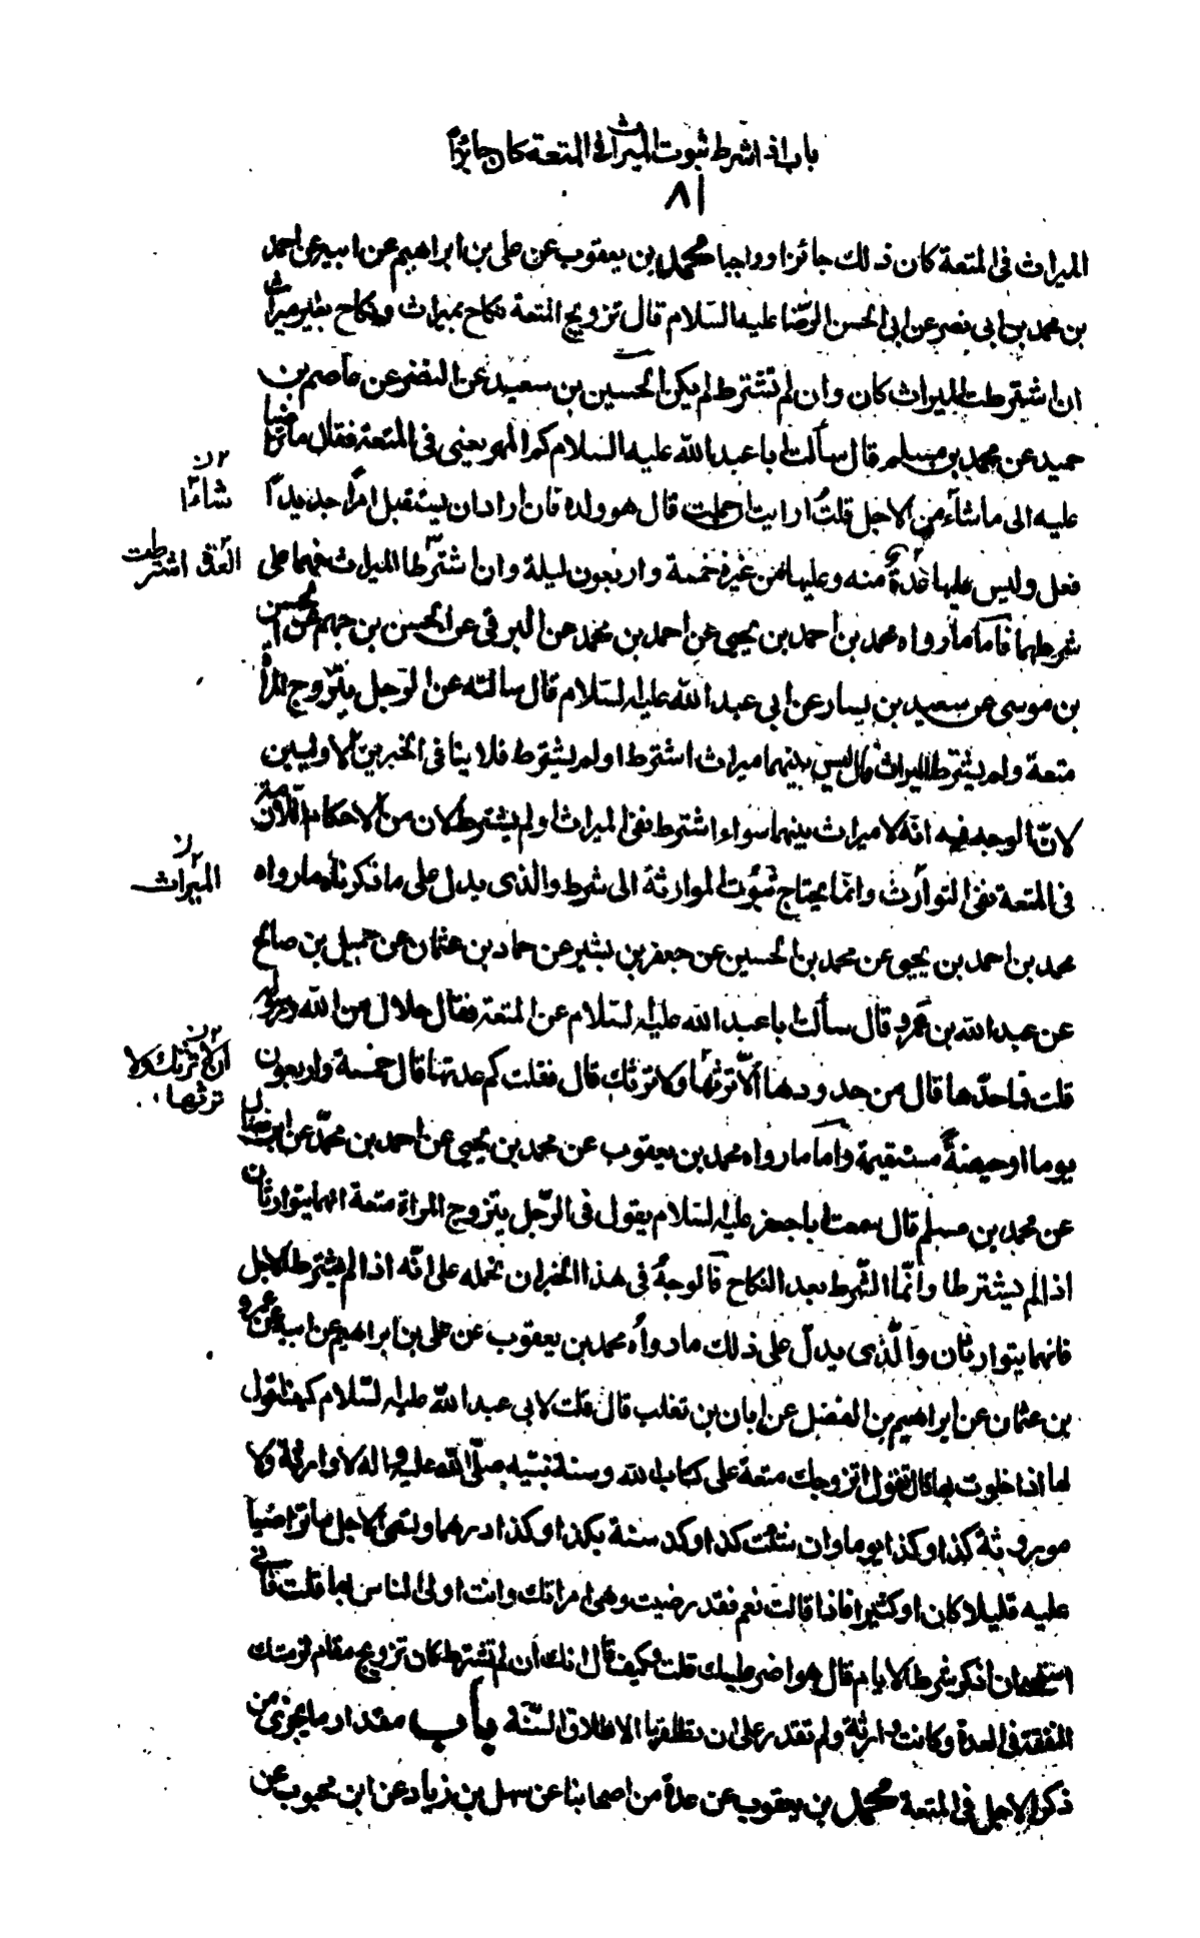 باب اذا اشرط ثبوت الميراث فى المتعة كان جائزاً
٨١
الميراث فى المتعة كان ذلك جائزا وواجبا محمد بن يعقوب عن على بن ابراهيم عن ابيه عن احمد
بن محمد بن ابى نصر عن ابى الحسن الرّضا عليه السّلام قال تزويج المتعة نكاح بميراث ونكاح بغير ميراث
ان اشترطت الميراث كان وان لم تشترط لم يكن الحسين بن سعيد عن النضر عن عاصم بن
حميد عن محمد بن مسلم قال سألت ابا عبد الله عليه السلام كم المهر يعنى فى المتعة فقال ما تراضيا
عليه الى ما شاء من الاجل قلتُ ارايت ان حملت قال هو ولده فان اراد ان يستقبل امراً جديداً
شاءَا ن
فعل وليس عليها عدةٌ منه وعليها من غيره خمسة واربعون ليلة وان اشترطا الميراث فهما على
العدّة اشترطت
شرطهما فاما ما رواه محمد بن احمد بن يحيى عن احمد بن محمد عن البرقى عن الحسن بن جهم عن الحسن
بن موسى عن سعيد بن يسار عن ابى عبد الله عليه السّلام قال سالته عن الرّجل يتزّوج المرأة
متعة ولم يشترط الميراث قال ليس بينهما ميراث اشترط اولم يشترط فلا ينافى الخبرين الاوليين
لانّ الوجه فيه انّه لا ميراث بينهما سواء اشترط نفى الميراث او لم يشترط لان من الاحكام اللازمة
فى المتعة نفى التوارث وانّما يحتاج ثبوت الموارثة الى شرط والذى يدل على ما ذكرناه ما رواه
الميراث ن
محمد بن احمد بن يحيى عن محمد بن الحسين عن جعفر بن بشير عن حماد بن عثمان عن جميل بن صالح
عن عبد الله بن عمرو قال سألت ابا عبد الله عليه السّلام عن المتعة فقال حلال من الله ورسوله
قلت فما حدّها قال من حدودها ألاّ ترثها ولا ترثك قال فقلت كم عدتها قال خمسة واربعون
ان لا ترثك ولا ترثها ن
يوما او حيضةٌ مستقيمة وامّا ما رواه محمد بن يعقوب عن محمد بن يحيى عن احمد بن محمّد عن ابن فضال
عن محمد بن مسلم قال سمعت ابا جعفر عليه السّلام يقول فى الرّجل يتزوج المراة متعة انهما يتوارثان
اذا لم يشترطا وانّما الشّرط بعد النكاح فالوجهُ فى هذا الخبر ان نحمله على انّه اذا لم يشترط الاجل
فانهما يتوارثان والّذى يدلّ على ذلك ما رواه محمد بن يعقوب عن على بن ابراهيم عن ابيه عن عمرو
بن عثمان عن ابراهيم بن الفضل عن ابان بن تغلب قال قلت لابى عبد الله عليه السّلام كيف اقول
لها اذا خلوت بها قال تقول اتزوجك متعة على كتاب الله وسنة نبيّه صلّى الله عليه واله لا وارثة ولا
موروثة كذا وكذا يوما وان شئت كذا وكذا سنة بكذا وكذا درهما وتسمى الاجل ما تراضيا
عليه قليلا كان او كثيرا فاذا قالت نعم فقد رضيت وهى امراتك وانت اولى الناس بها قلت فانّى
استحى ان اذكر شرط الايام قال هو اضر عليك قلت وكيف قال انك ان لم تشترط كان تزويج مقام لزمتك
النفقة فى العدة وكانت وارثة ولم تقدر على ان تطلقها الا طلاق السّنّة باب مقدار ما يجزى من
ذكر الاجل فى المتعة محمد بن يعقوب عن عدة من اصحابنا عن سهل بن زياد عن ابن محبوب عن